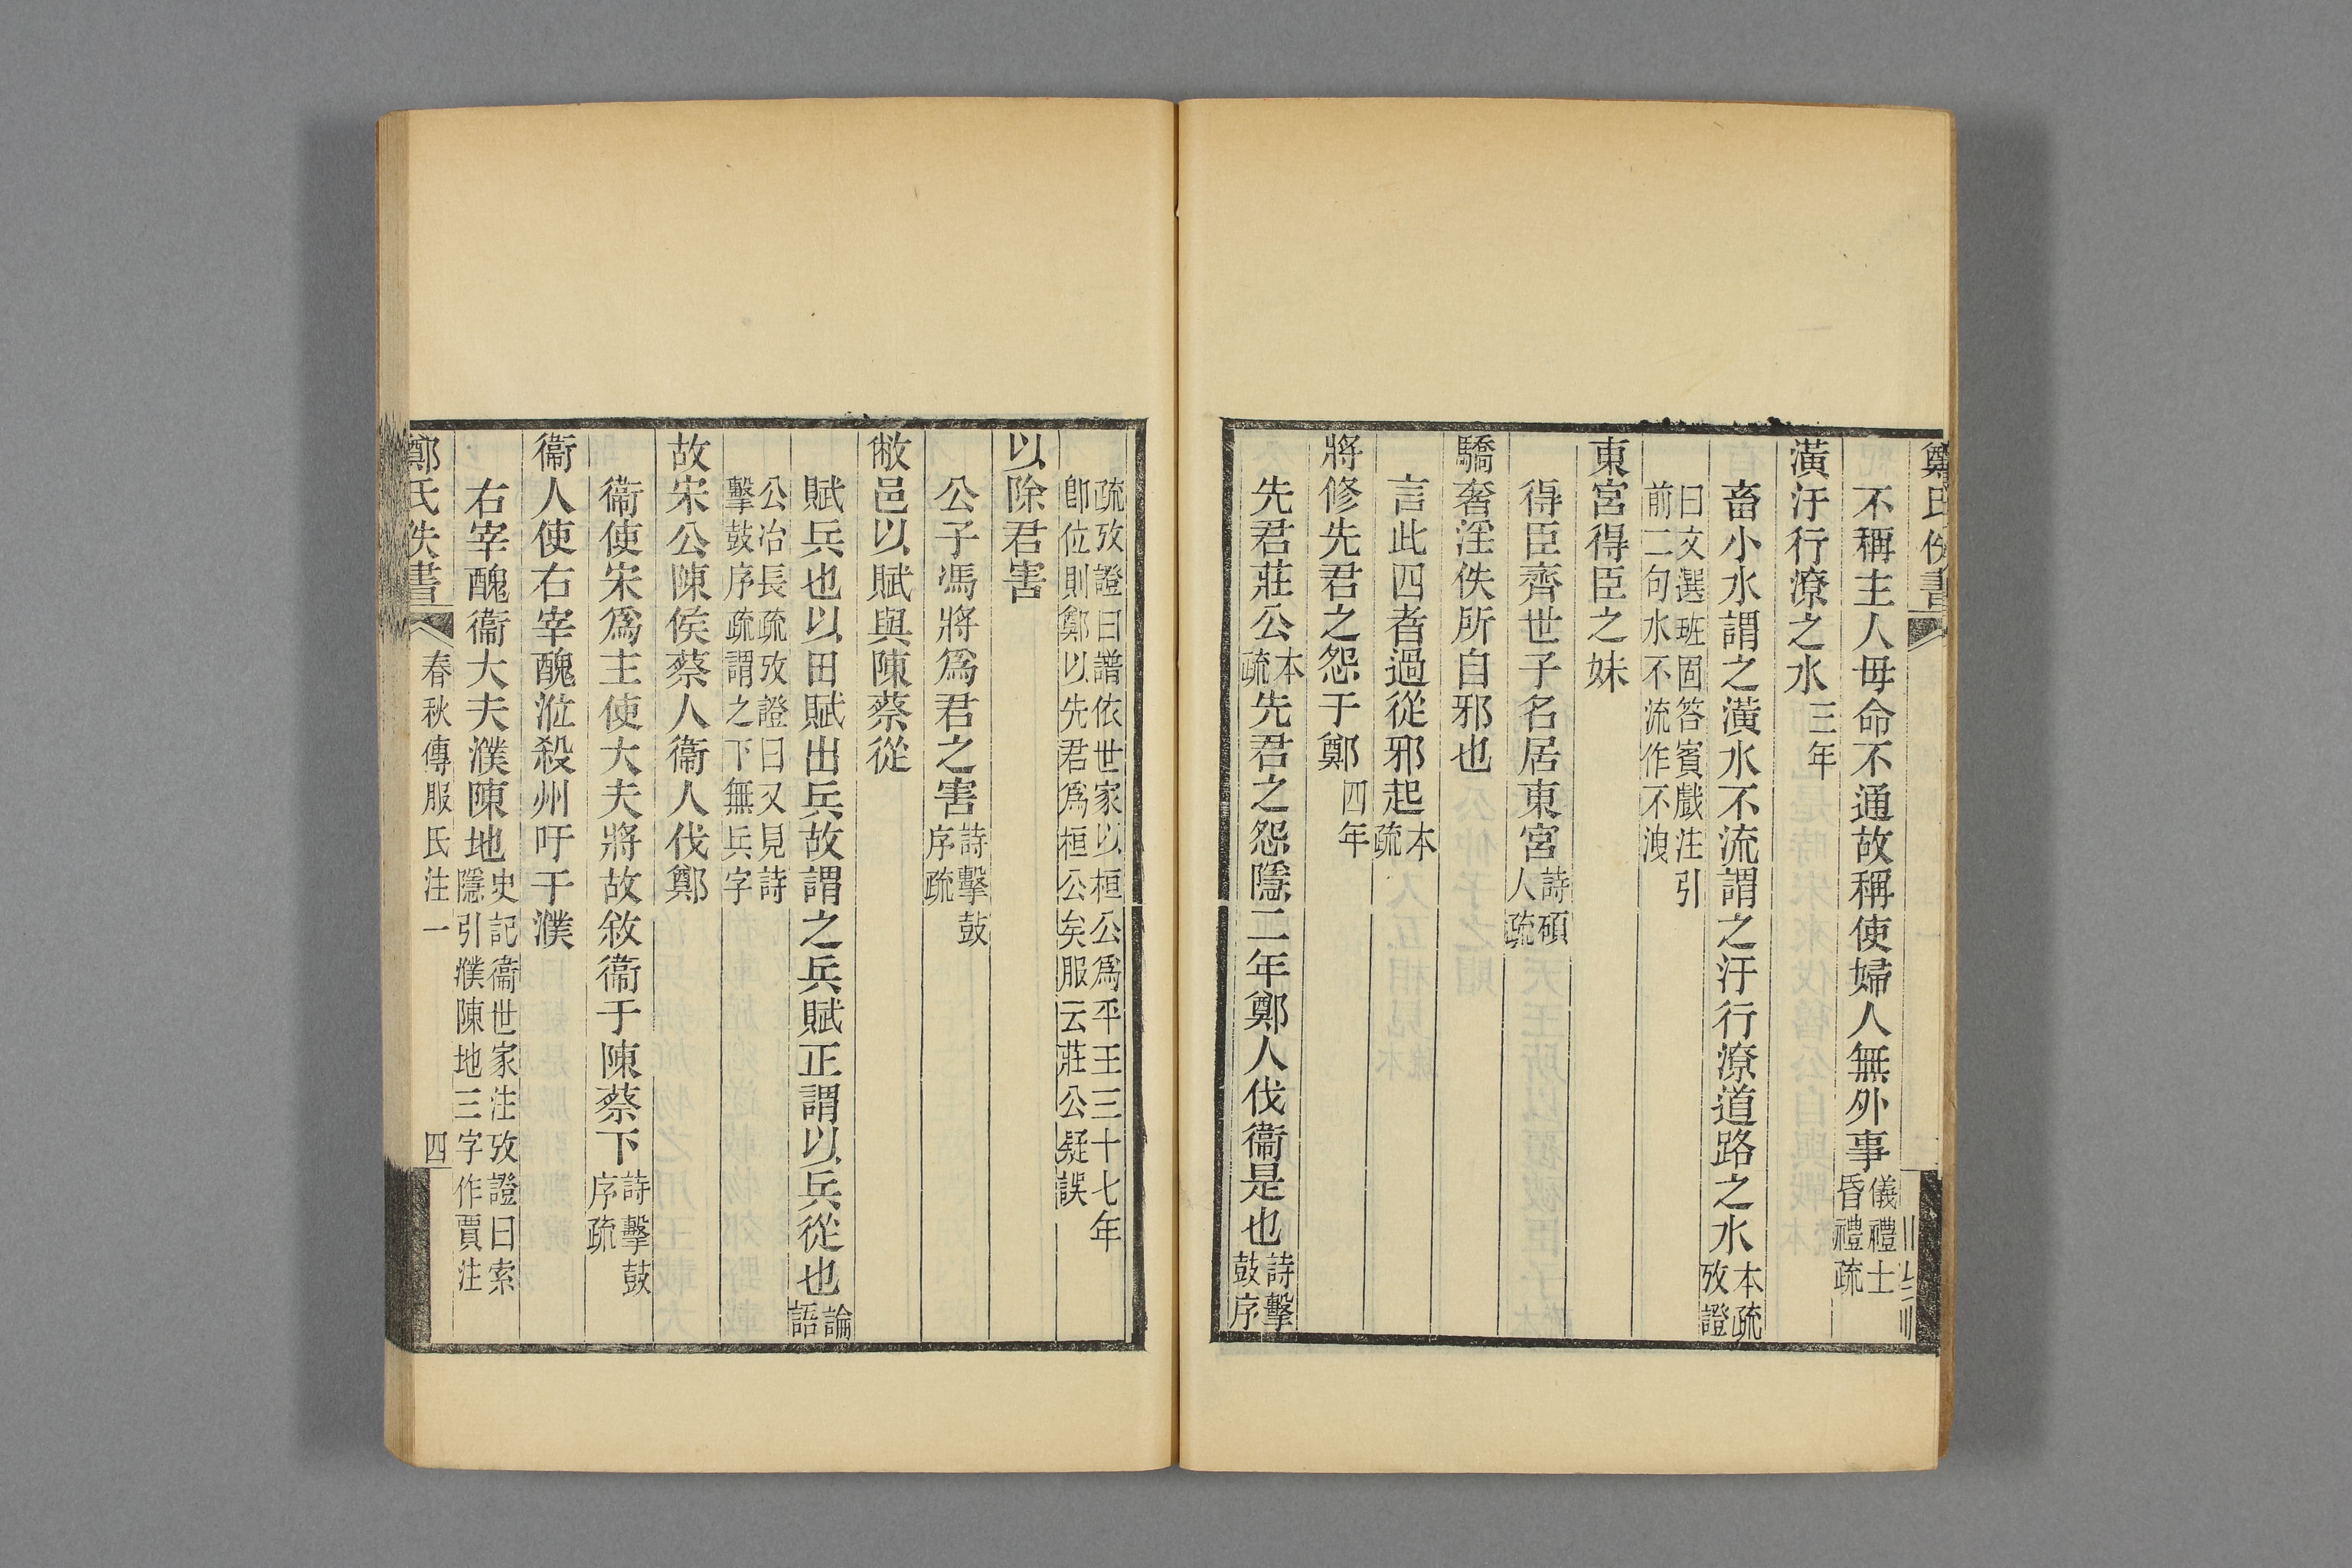 鄭氏佚書
不稱主人毋命不通故稱使婦人無外事儀禮士昏禮疏
潢汙行潦之水三年
畜小水謂之潢水不流謂之汙行潦道路之水本疏攷證
曰文選班固答賓戲注引前二句水不流作不洩
東宮得臣之妹
得臣齊世子名居東宮詩碩人疏
驕奢淫佚所自邪也
言此四者過從邪起本疏
將修先君之怨于鄭四年
先君莊公本疏先君之怨隱二年鄭人伐衞是也詩擊鼓序
疏攷證曰譜依世家以桓公爲平王三十七年卽位則鄭以先君爲桓公矣服云莊公疑誤
以除君害
公子馮將爲君之害詩擊鼓序疏
敝邑以賦與陳蔡從
賦兵也以田賦出兵故謂之兵賦正謂以兵從也論語
公冶長疏攷證曰又見詩擊鼓序疏謂之下無兵字
故宋公陳侯蔡人衞人伐鄭
衞使宋爲主使大夫將故敘衞于陳蔡下詩擊鼓序疏
衞人使右宰醜涖殺州吁于濮
右宰醜衞大夫濮陳地史記衞世家注攷證曰索隱引濮陳地三字作賈注
鄭氏佚書 春秋傳服氏注一 四